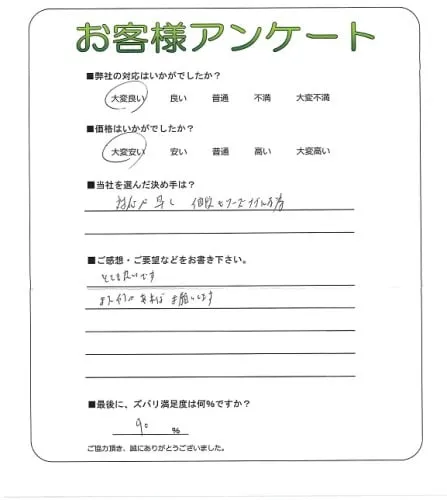 お客様アンケート
■弊社の対応はいかがでしたか？
大変良い 良い 普通 不満 大変不満
■価格はいかがでしたか？
大変安い 安い 普通 高い 大変高い
■当社を選んだ決め手は？
対応が早く
■ご感想・ご要望などをお書き下さい。
とても良いです
また何かあればお願いします
■最後に、ズバリ満足度は何%ですか？
90 %
ご協力頂き、誠にありがとうございました。